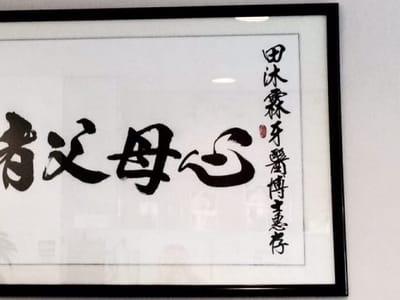 田沐霖牙醫博士惠存
者父母心